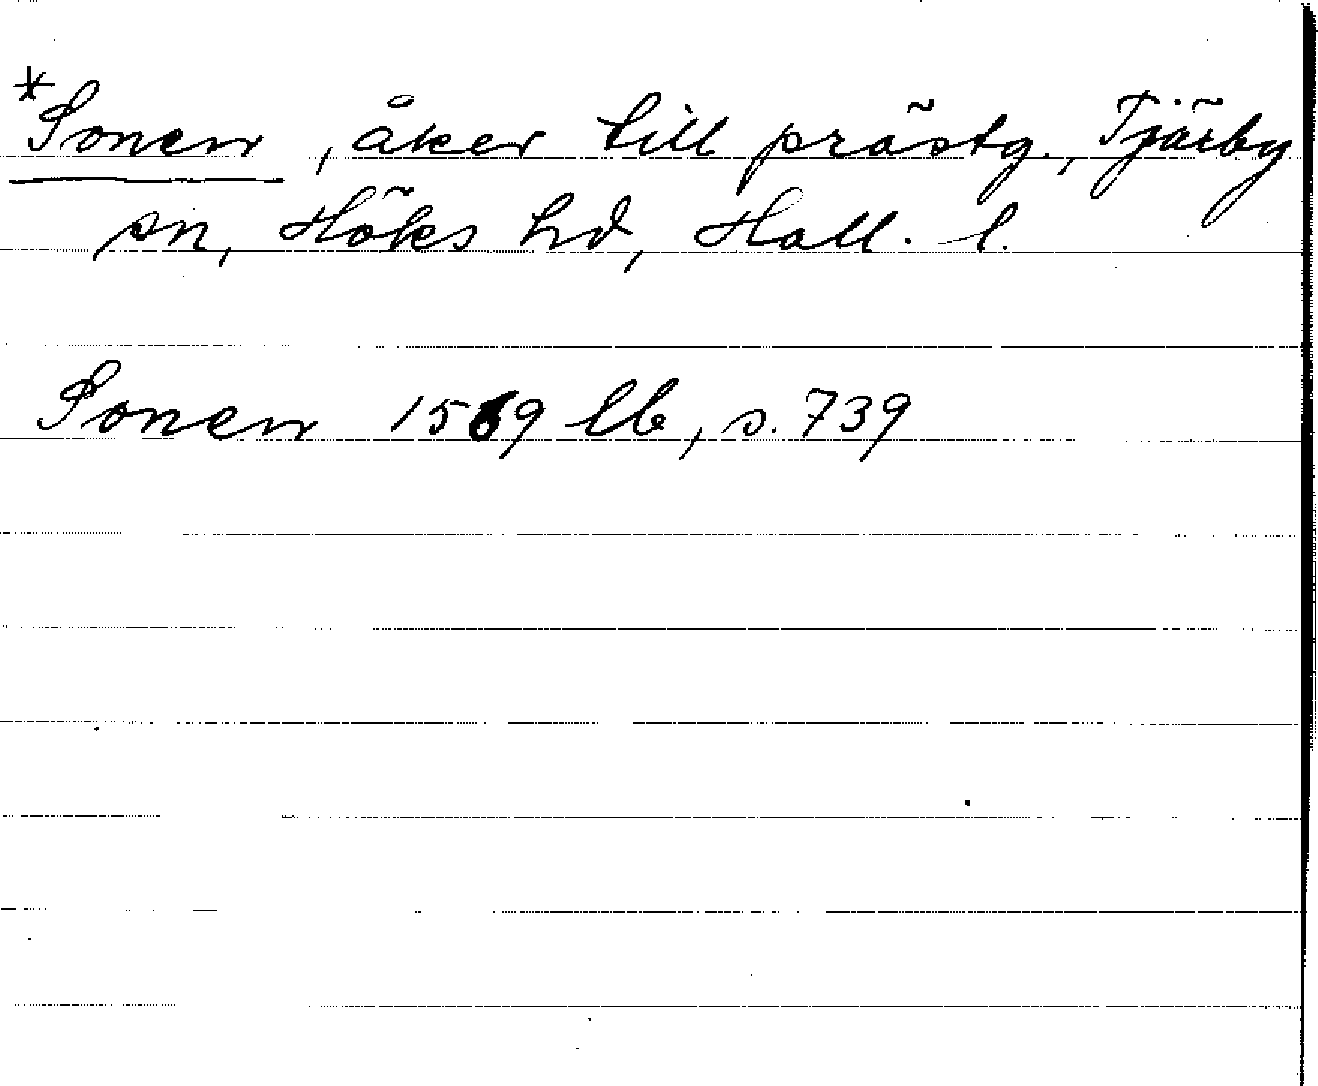 *Sonen, åker till prästg., Tjärby
sn, Höks hd, Hall. l.
Sonen 1569 lb, s. 739